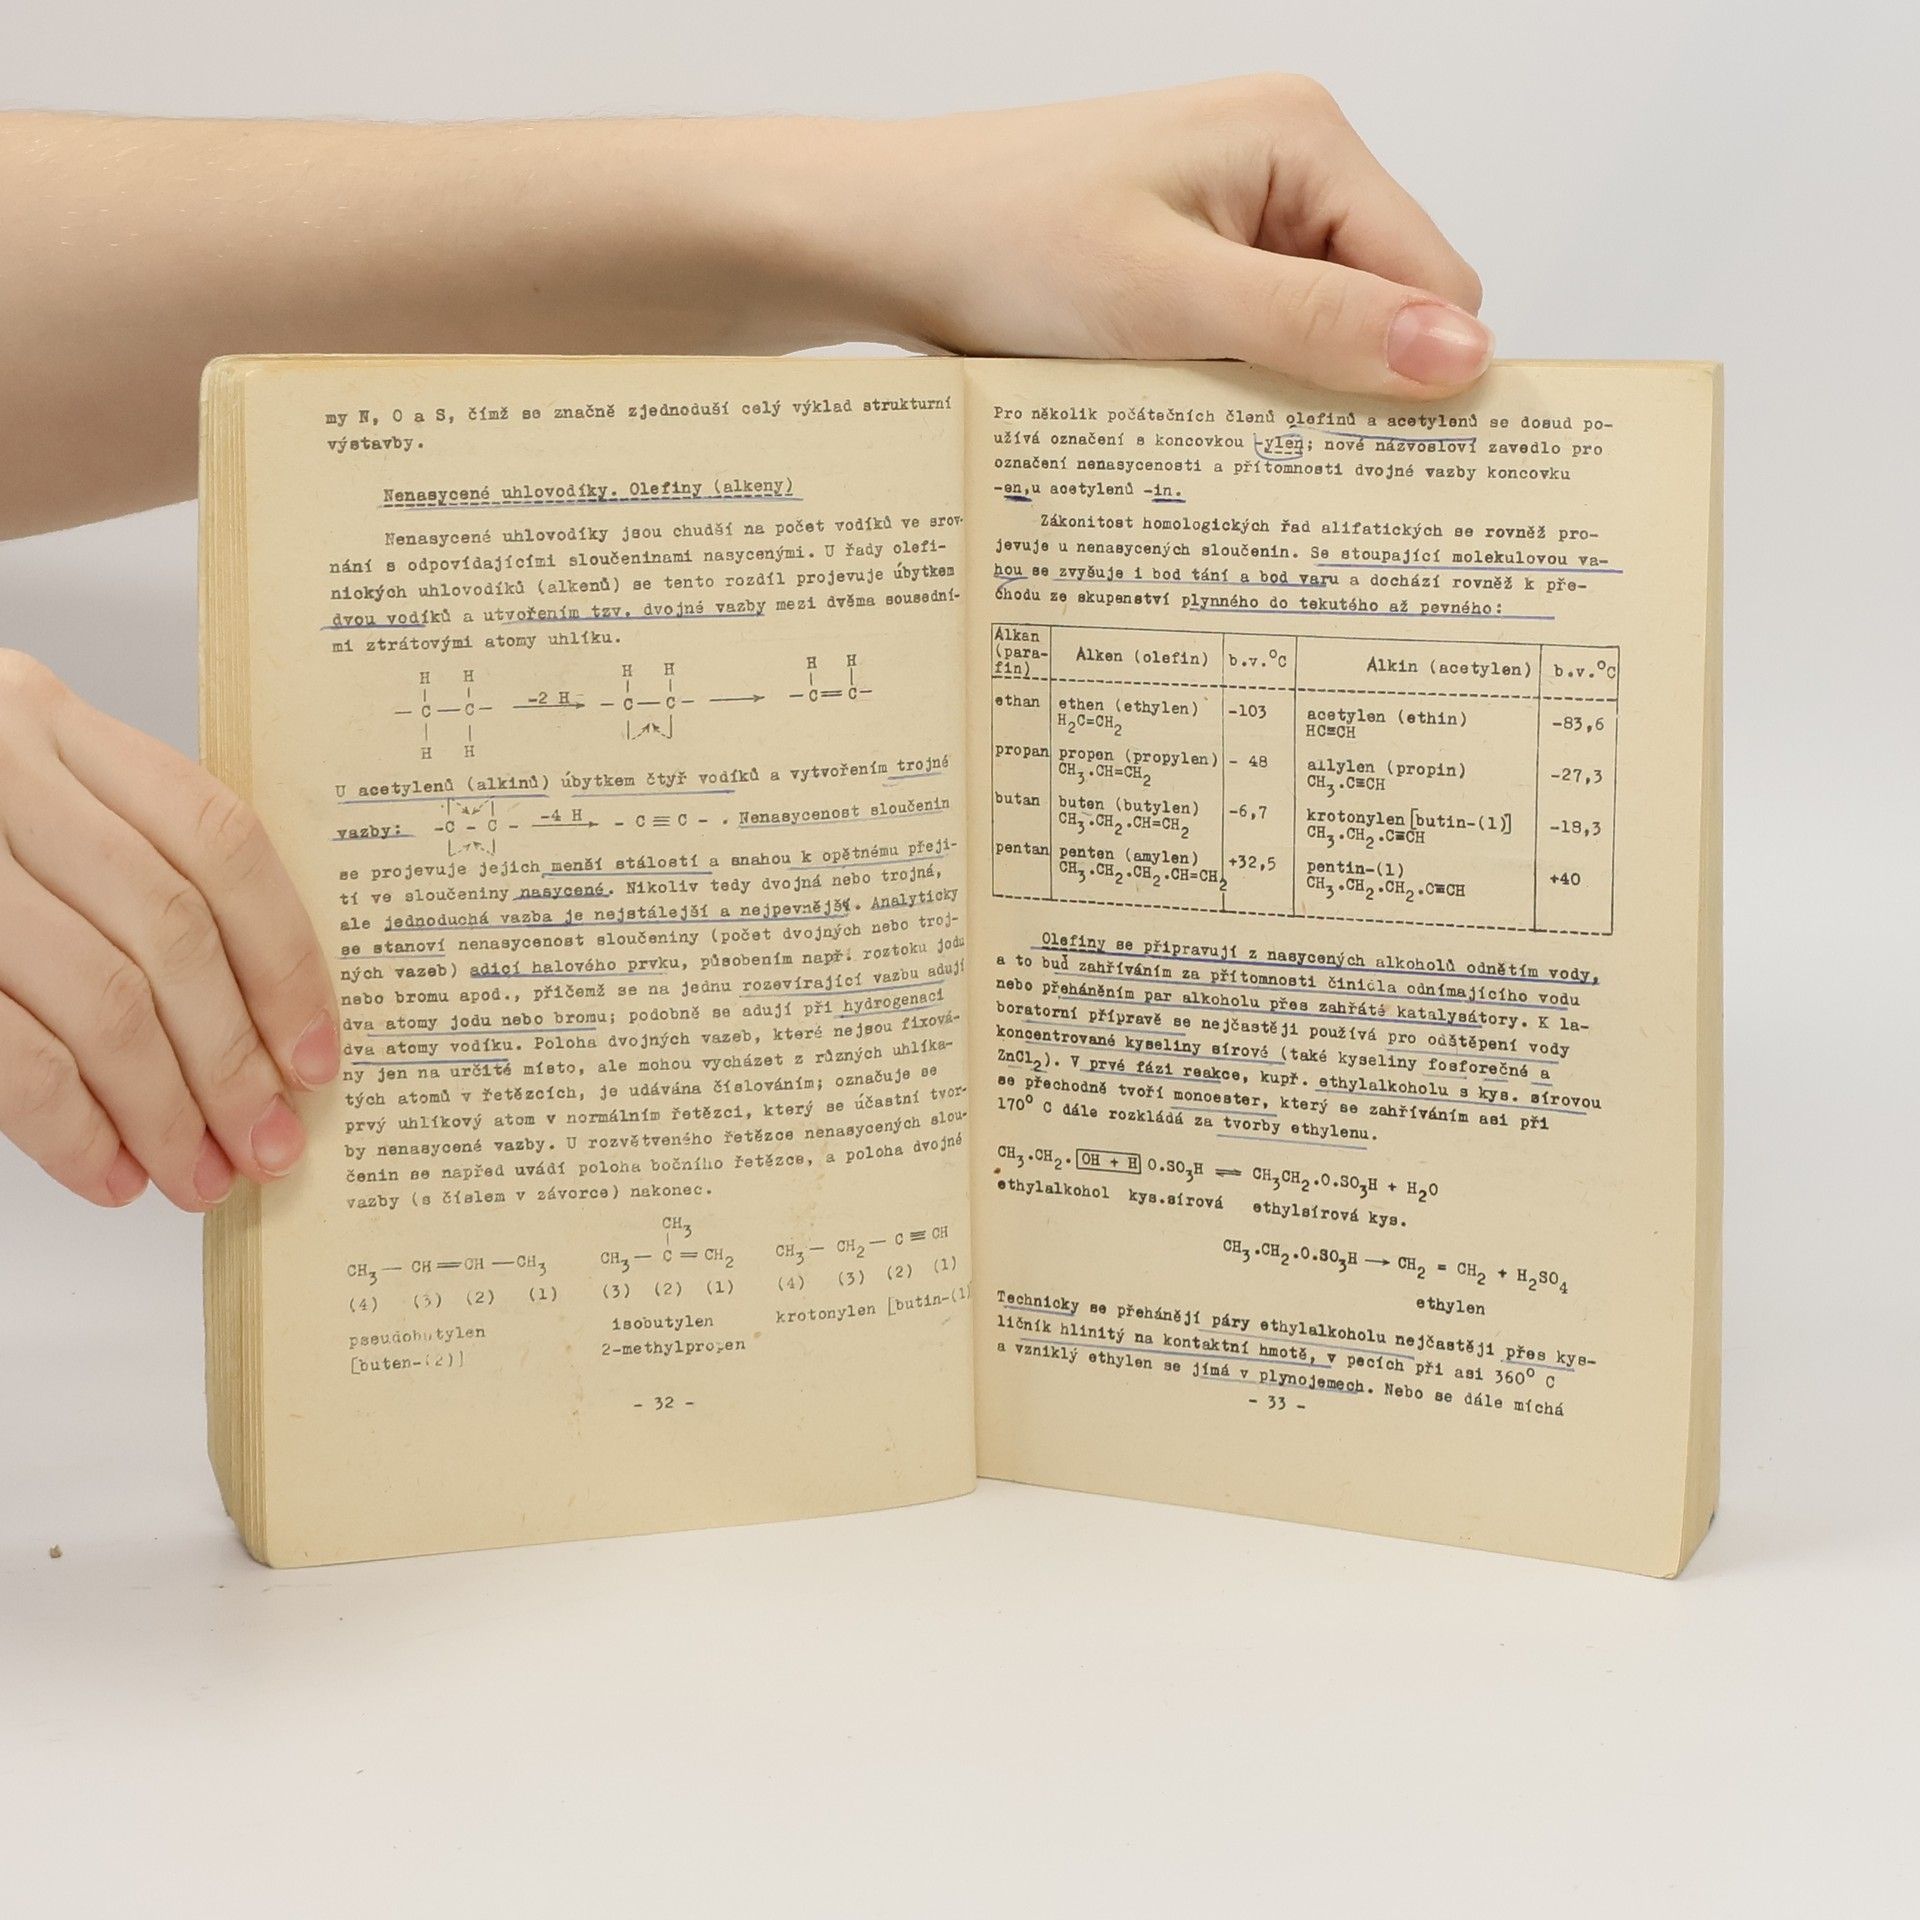 my N, O a S, čímž se značně zjednoduší celý výklad strukturní
výstavby.
Nenasycené uhlovodíky. Olefiny (alkeny)
Nenasycené uhlovodíky jsou chudší na počet vodíků ve srov-
nání s odpovídajícími sloučeninami nasycenými. U řady olefi-
nických uhlovodíků (alkenů) se tento rozdíl projevuje úbytkem
dvou vodíků a utvořením tzv. dvojné vazby mezi dvěma sousední-
mi ztrátovými atomy uhlíku.
H H H H H H
— C — C — -2 H — C — C — — C = C —
H H
U acetylenů (alkinů) úbytkem čtyř vodíků a vytvořením trojné
vazby: -C - C - -4 H - C ≡ C - . Nenasycenost sloučenin
se projevuje jejich menší stálostí a snahou k opětnému přeji-
tí ve sloučeniny nasycené. Nikoliv tedy dvojná nebo trojná,
ale jednoduchá vazba je nejstálejší a nejpevnější. Analyticky
se stanoví nenasycenost sloučeniny (počet dvojných nebo troj-
ných vazeb) adicí halového prvku, působením např. roztoku jodu
nebo bromu apod., přičemž se na jednu rozevírající vazbu adují
dva atomy jodu nebo bromu; podobně se adují při hydrogenaci
dva atomy vodíku. Poloha dvojných vazeb, které nejsou fixová-
ny jen na určité místo, ale mohou vycházet z různých uhlíka-
tých atomů v řetězcích, je udávána číslováním; označuje se
prvý uhlíkový atom v normálním řetězci, který se účastní tvor-
by nenasycené vazby. U rozvětveného řetězce nenasycených slou-
čenin se napřed uvádí poloha bočního řetězce, a poloha dvojné
vazby (s číslem v závorce) nakonec.
CH3
CH3 — CH = CH — CH3 CH3 — C = CH2 CH3 — CH2 — C ≡ CH
(4) (3) (2) (1) (3) (2) (1) (4) (3) (2) (1)
pseudobutylen isobutylen krotonylen [butin-(1)
[buten-(2)] 2-methylpropen
- 32 -
Pro několik počátečních členů olefinů a acetylenů se dosud po-
užívá označení s koncovkou -ylen; nové názvosloví zavedlo pro
označení nenasycenosti a přítomnosti dvojné vazby koncovku
-en,u acetylenů -in.
Zákonitost homologických řad alifatických se rovněž pro-
jevuje u nenasycených sloučenin. Se stoupající molekulovou va-
hou se zvyšuje i bod tání a bod varu a dochází rovněž k pře-
chodu ze skupenství plynného do tekutého až pevného:
Alkan (para-fin) Alken (olefin) b.v.°C Alkin (acetylen) b.v.°C
ethan ethen (ethylen) -103 acetylen (ethin) -83,6
H2C=CH2 HC≡CH
propan propen (propylen) - 48 allylen (propin) -27,3
CH3.CH=CH2 CH3.C≡CH
butan buten (butylen) -6,7 krotonylen [butin-(1)] -18,3
CH3.CH2.CH=CH2 CH3.CH2.C≡CH
pentan penten (amylen) +32,5 pentin-(1) +40
CH3.CH2.CH2.CH=CH2 CH3.CH2.CH2.C≡CH
Olefiny se připravují z nasycených alkoholů odnětím vody,
a to buď zahříváním za přítomnosti činidla odnímajícího vodu
nebo přeháněním par alkoholu přes zahřáté katalysátory. K la-
boratorní přípravě se nejčastěji používá pro odštěpení vody
koncentrované kyseliny sírové (také kyseliny fosforečné a
ZnCl2). V prvé fázi reakce, kupř. ethylalkoholu s kys. sírovou
se přechodně tvoří monoester, který se zahříváním asi při
170° C dále rozkládá za tvorby ethylenu.
CH3.CH2. OH + H O.SO3H ⇌ CH3CH2.O.SO3H + H2O
ethylalkohol kys.sírová ethylsírová kys.
CH3.CH2.O.SO3H → CH2 = CH2 + H2SO4
ethylen
Technicky se přehánějí páry ethylalkoholu nejčastěji přes kys-
ličník hlinitý na kontaktní hmotě, v pecích při asi 360° C
a vzniklý ethylen se jímá v plynojemech. Nebo se dále míchá
- 33 -